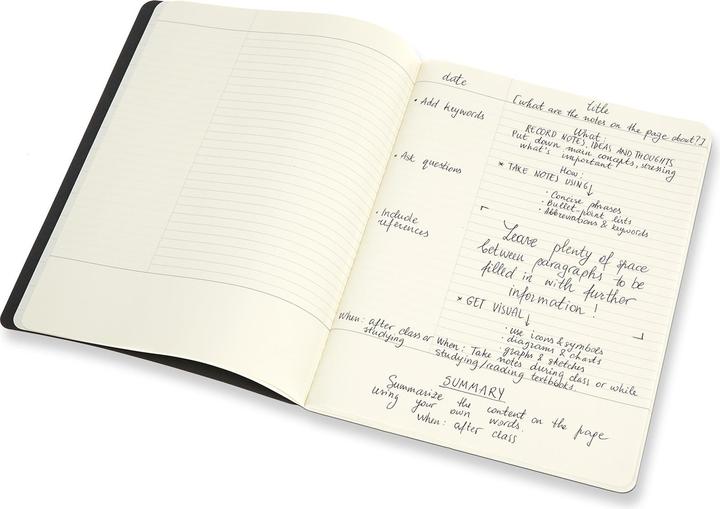 date
title
[what are the notes on the page about?]
• Add keywords
• Ask questions
• Include
references
When: after class or
studying
What:
RECORD NOTES, IDEAS AND THOUGHTS
Put down main concepts, stressing
what's important
How:
* TAKE NOTES USING↓
• Concise phrases
• Bullet-point lists
• Abbreviations & keywords
Leave plenty of space
between paragraphs to be
filled in with further
information!
* GET VISUAL↓
• use icons & symbols
• diagrams & charts
• graphs & sketches
When: Take notes during class or while
studying/reading textbooks.
SUMMARY
Summarize the content on the page
using your own words.
When: after class